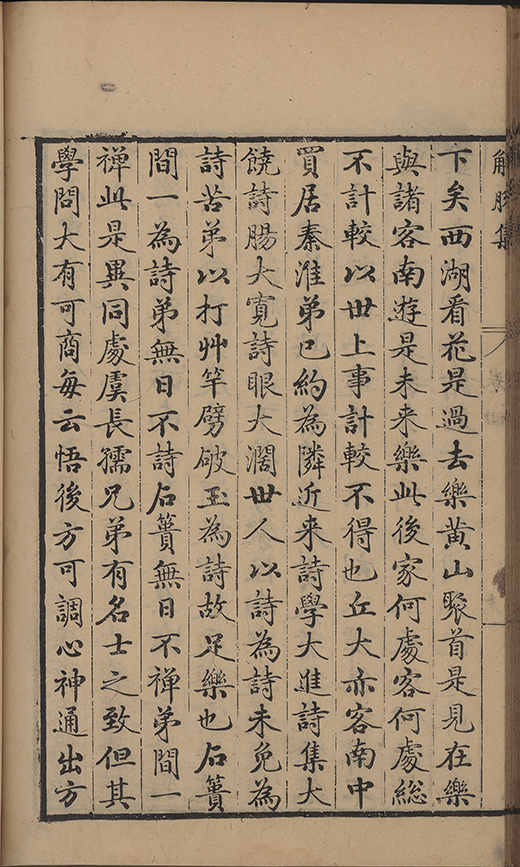 解脫集
下矣西湖看花是過去樂黄山聚首是見在樂
與諸客南遊是未来樂此後家何處客何處總
不計較以世上事計較不得也丘大亦客南中
買居秦淮弟已約為隣近来詩學大進詩集大
饒詩腸大寛詩眼大濶世人以詩為詩未免為
詩苦弟以打艸竿劈破玉為詩故足樂也石簣
間一為詩弟無日不詩石簣無日不禅弟間一
禅此是異同處虞長孺兄弟有名士之致但其
學問大有可商每云悟後方可調心神通出方